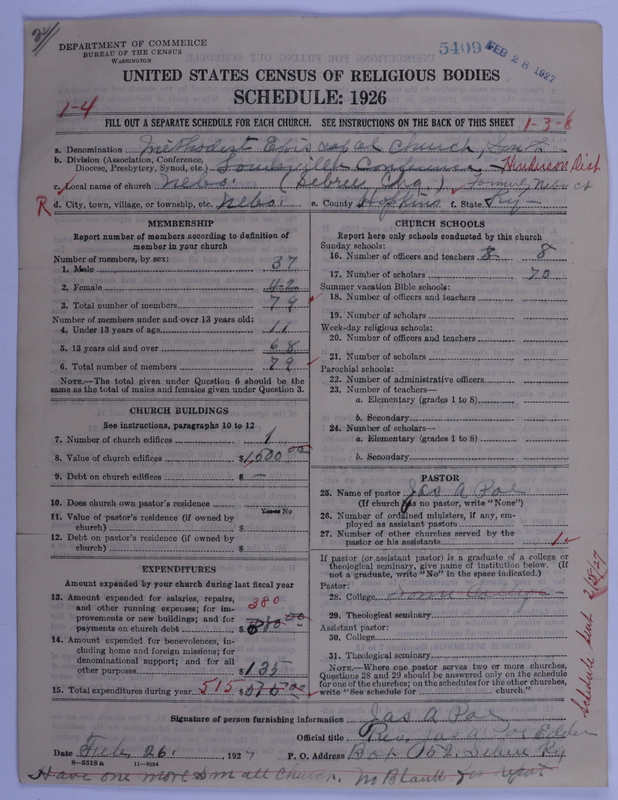 24
DEPARTMENT OF COMMERCE
BUREAU OF THE CENSUS
WASHINGTON
5409 FEB 28 1927
UNITED STATES CENSUS OF RELIGIOUS BODIES
SCHEDULE: 1926
1-4
FILL OUT A SEPARATE SCHEDULE FOR EACH CHURCH. SEE INSTRUCTIONS ON THE BACK OF THIS SHEET 1-3-8
a. Denomination Methodist Episcopal Church, South
b. Division (Association, Conference,
Diocese, Presbytery, Synod, etc.) Louisville Conference Henderson Dist
c. Local name of church Nebo. (Sebree Chg.) Formerly Nebo ct
R d. City, town, village, or township, etc. Nebo. e. County Hopkins f. State Ky
MEMBERSHIP
Report number of members according to definition of
member in your church
Number of members, by sex:
1. Male 37
2. Female 42
3. Total number of members 79
Number of members under and over 13 years old:
4. Under 13 years of age 11
5. 13 years old and over 68
6. Total number of members 79
NOTE.—The total given under Question 6 should be the
same as the total of males and females given under Question 3.
CHURCH BUILDINGS
See instructions, paragraphs 10 to 12
7. Number of church edifices 1
8. Value of church edifices $1,500 00
9. Debt on church edifices $ —
10. Does church own pastor's residence
Yes or No
11. Value of pastor's residence (if owned by
church) $
12. Debt on pastor's residence (if owned by
church) $
EXPENDITURES
Amount expended by your church during last fiscal year
13. Amount expended for salaries, repairs,
and other running expenses; for im-
provements or new buildings; and for
payments on church debt 380 $ 00
14. Amount expended for benevolences, in-
cluding home and foreign missions; for
denominational support; and for all
other purposes $135
15. Total expenditures during year 515 $ 00
CHURCH SCHOOLS
Report here only schools conducted by this church
Sunday schools:
16. Number of officers and teachers 8 8
17. Number of scholars 70
Summer vacation Bible schools:
18. Number of officers and teachers
19. Number of scholars
Week-day religious schools:
20. Number of officers and teachers
21. Number of scholars
Parochial schools:
22. Number of administrative officers
23. Number of teachers—
a. Elementary (grades 1 to 8)
b. Secondary
24. Number of scholars—
a. Elementary (grades 1 to 8)
b. Secondary
PASTOR
25. Name of pastor Jas A Poe
(If church has no pastor, write "None")
26. Number of ordained ministers, if any, em-
ployed as assistant pastors
27. Number of other churches served by the
pastor or his assistants 1
If pastor (or assistant pastor) is a graduate of a college or
theological seminary, give name of institution below. (If
not a graduate, write "No" in the space indicated.)
Pastor:
28. College
29. Theological seminary
Assistant pastor:
30. College
31. Theological seminary
NOTE.—Where one pastor serves two or more churches,
Questions 28 and 29 should be answered only on the schedule
for one of the churches; on the schedules for the other churches,
write "See schedule for church."
Schedule sent 2/28/27
Signature of person furnishing information Jas A Poe
Official title Rev. Jas A Poe Elder
Date Feb. 26. 1927 P. O. Address Box 152. Sebree Ky
8-5518 a 11-9054
Have one more small church. No Blank for report